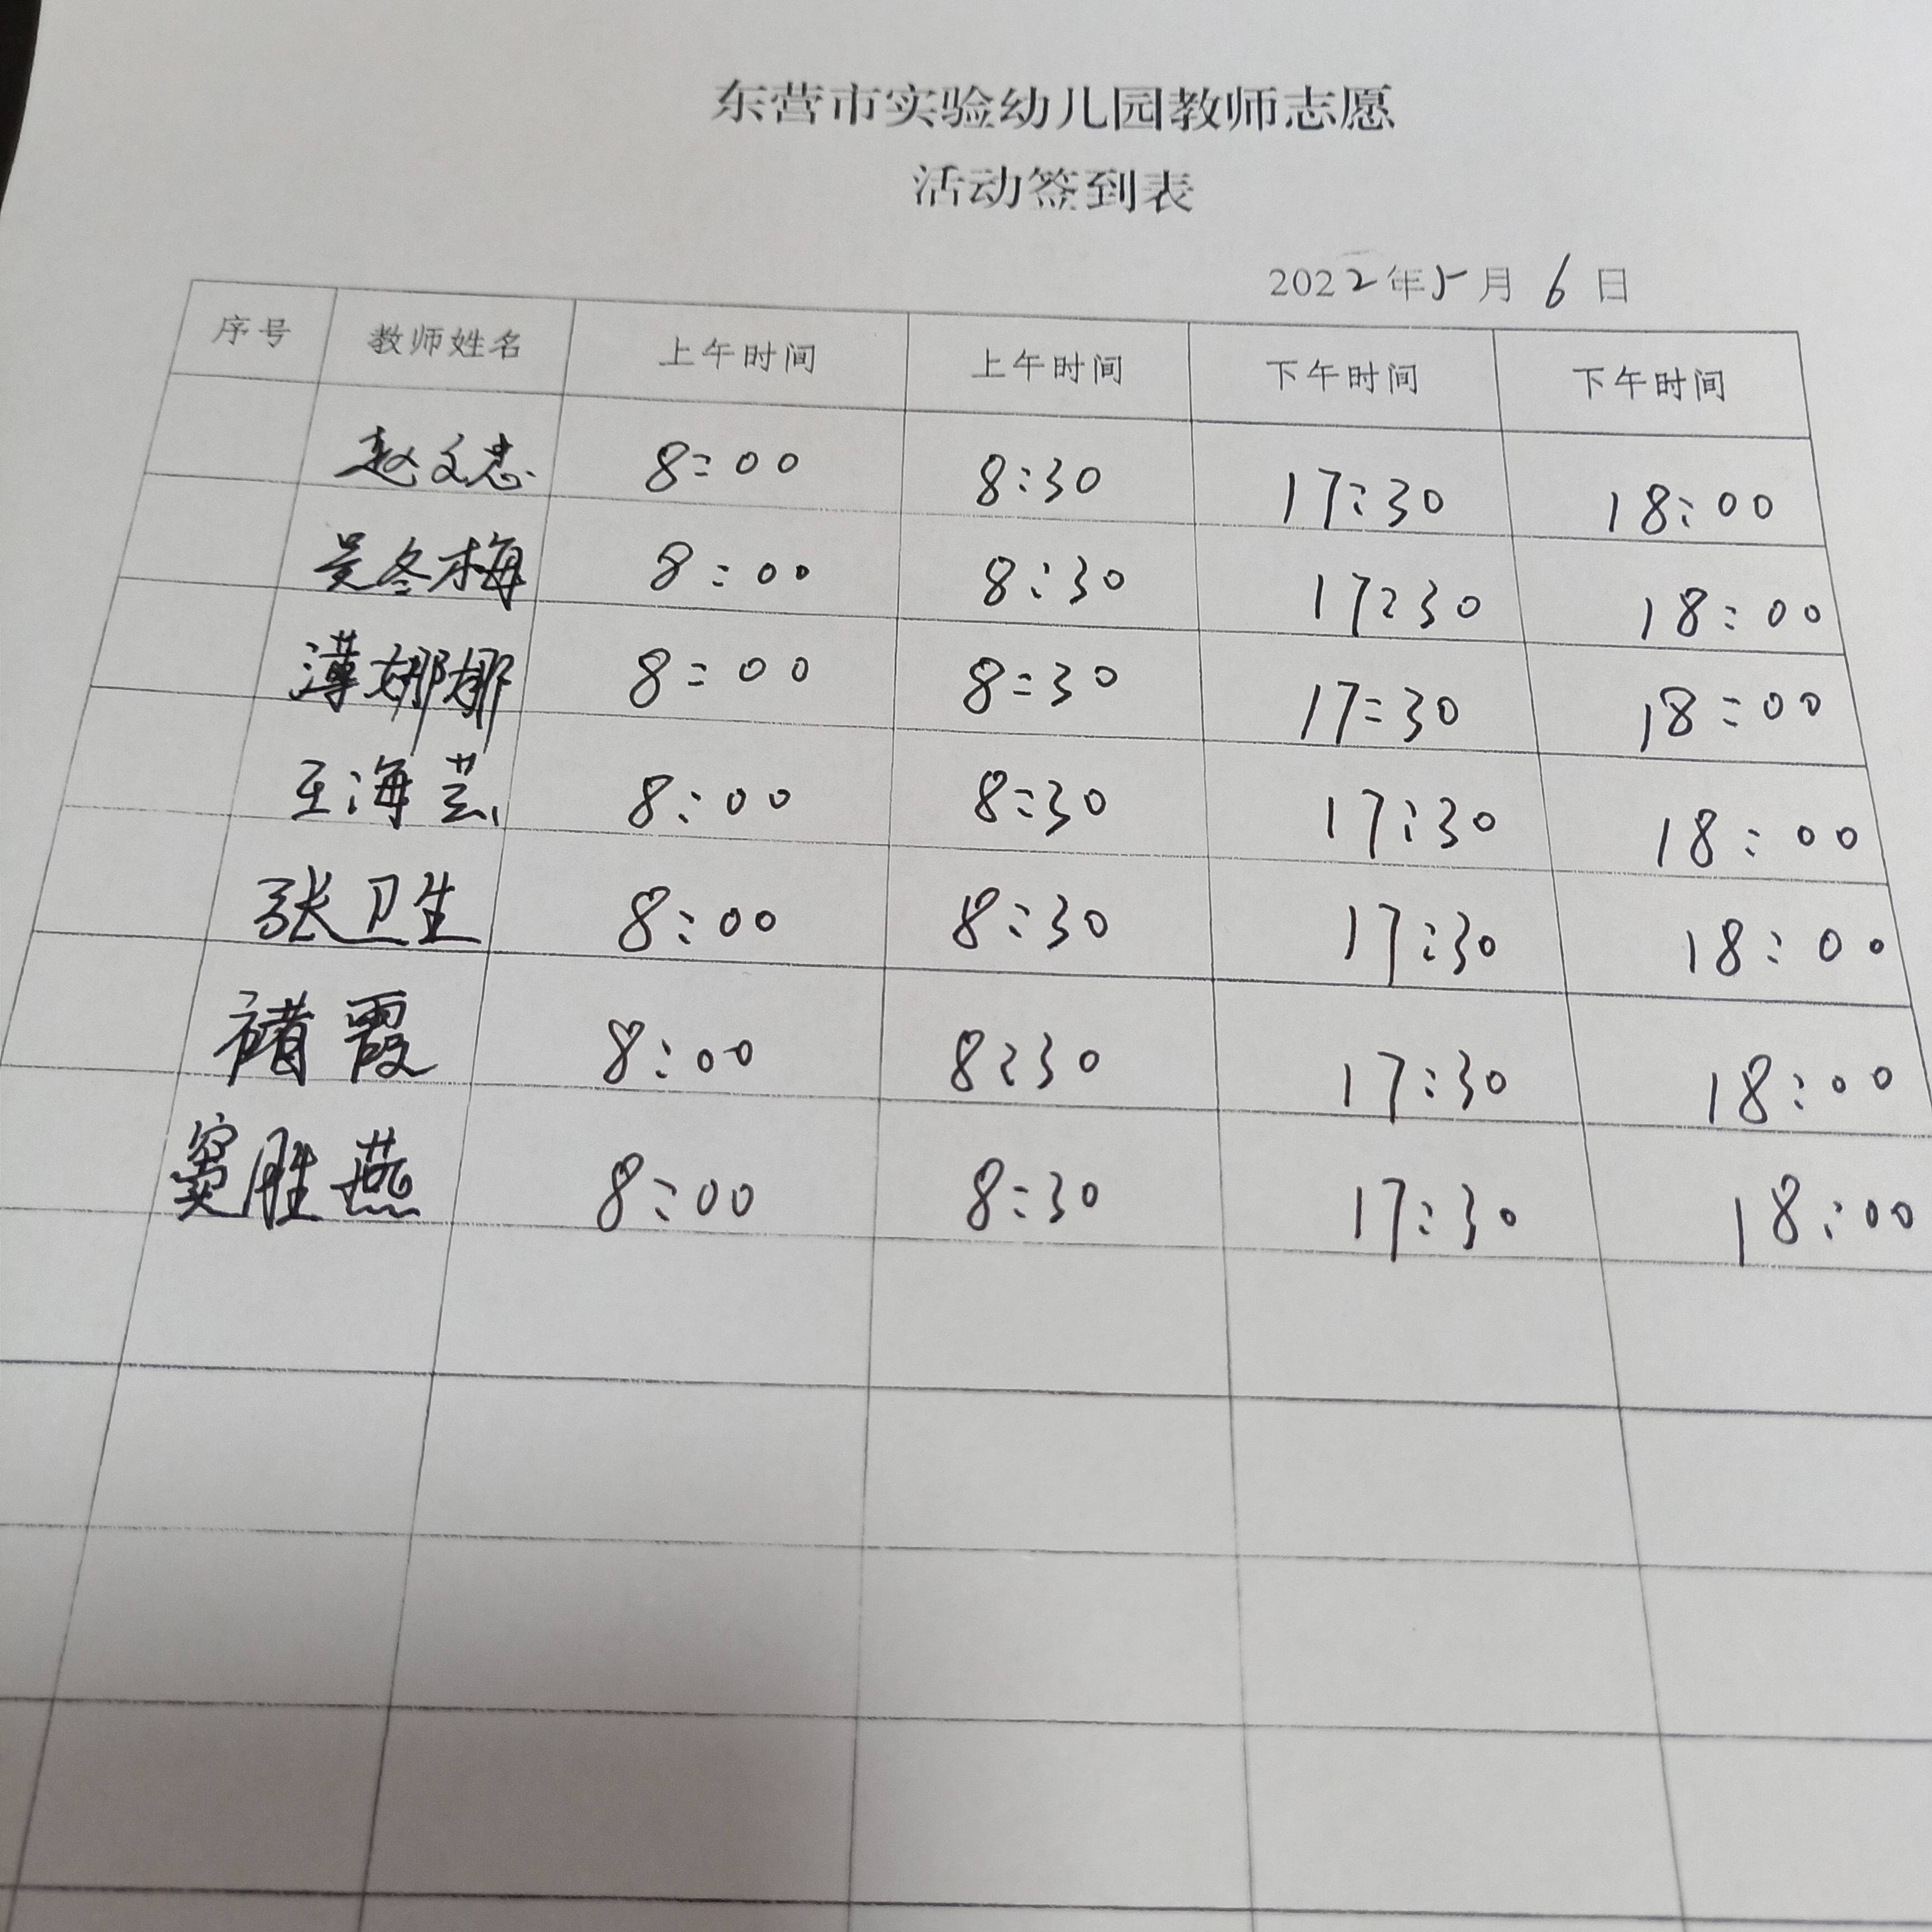 东营市实验幼儿园教师志愿
活动签到表
2022年5月6日
序号 教师姓名 上午时间 上午时间 下午时间 下午时间
赵文忠 8:00 8:30 17:30 18:00
吴冬梅 8:00 8:30 17:30 18:00
薄娜娜 8:00 8:30 17:30 18:00
王海芸 8:00 8:30 17:30 18:00
张卫生 8:00 8:30 17:30 18:00
褚霞 8:00 8:30 17:30 18:00
窦胜燕 8:00 8:30 17:30 18:00